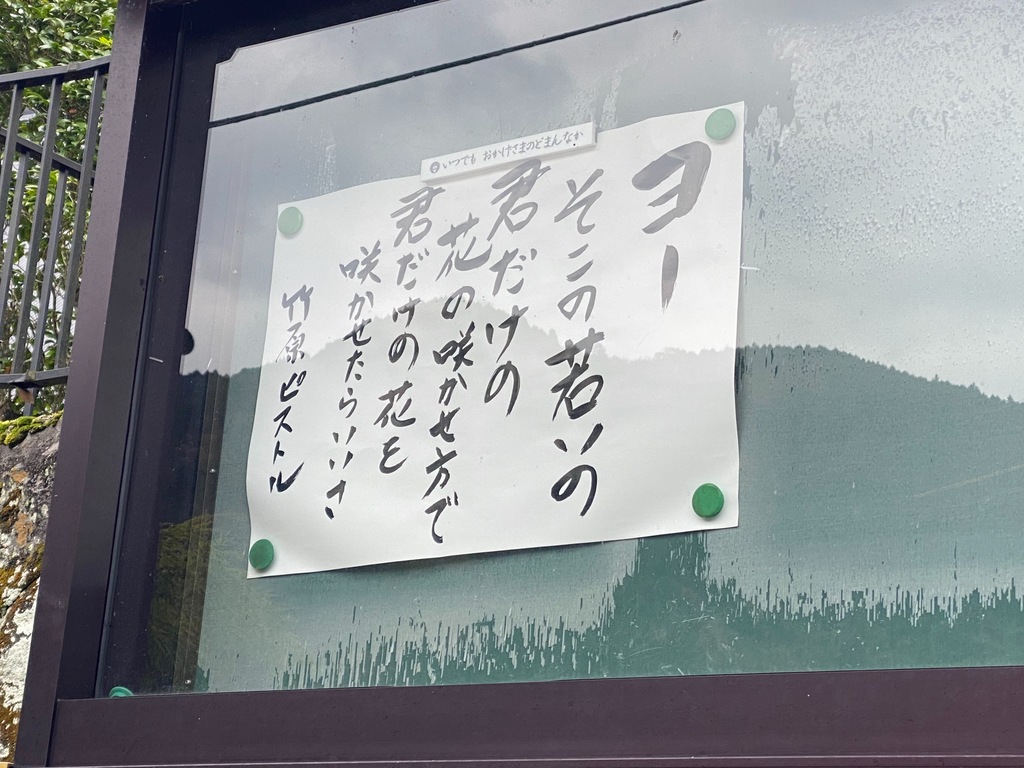 いつでも おかげさまのどまんなか
ヨー
そこの若いの
君だけの
花の咲かせ方で
君だけの花を
咲かせたらいいさ
竹原ピストル